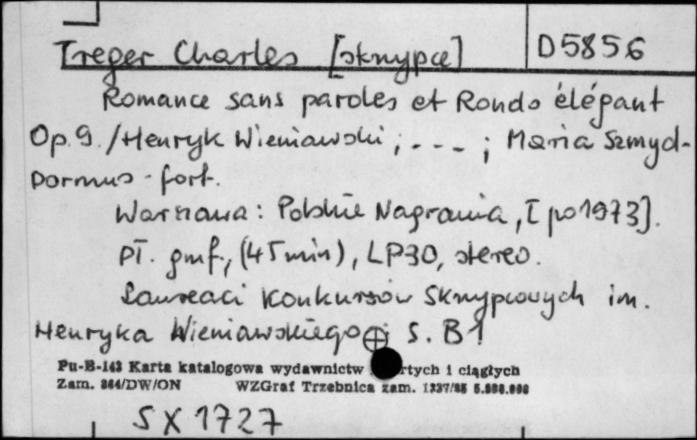 Treger Charles [skrzypce] D5856
Romance sans paroles et Rondo élégant
Op. 9. / Henryk Wieniawski ; - - - ; Maria Szmyd-
Dormus - fort.
Warszawa : Polskie Nagrania, [po 1973].
Pł. gmf., (45 min), LP30, stereo.
Laureaci Konkursów Skrzypcowych im.
Henryka Wieniawskiego S. B1
Pu-B-143 Karta katalogowa wydawnictw rtych i ciągłych
Zam. 864/DW/ON WZGraf Trzebnica zam.
SX 1727